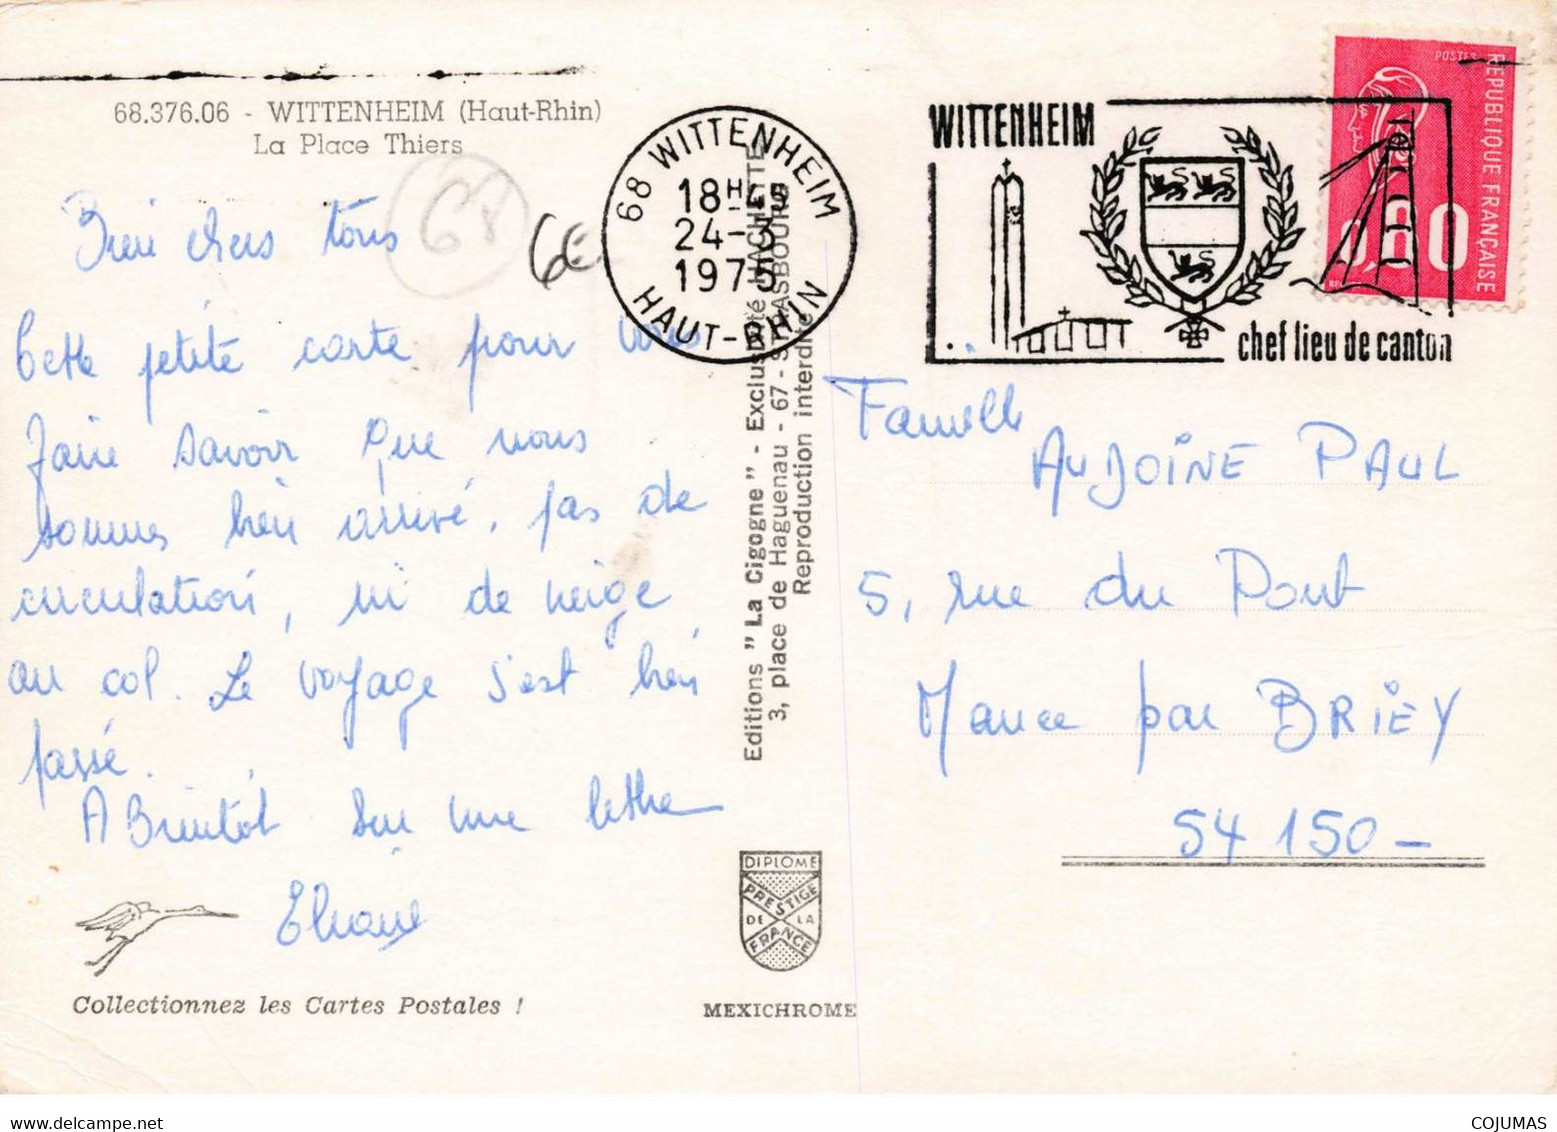 68.376.06 - WITTENHEIM (Haut-Rhin)
La Place Thiers
68
6E
Bien chers tous
Cette petite carte pour vous
faire savoir que nous
sommes bien arrivé, pas de
circulation, ni de neige
au col. Le voyage s'est bien
passé.
A Bientôt sur une lettre
Eliane
Collectionnez les Cartes Postales !
68 WITTENHEIM
18H 45
24-3
1975
HAUT-RHIN
Editions " La Cigogne " - Exclusivité HACHETTE
3, place de Haguenau - 67 - STRASBOURG
Reproduction interdite
DIPLOME
PRESTIGE
DE LA
FRANCE
MEXICHROME
WITTENHEIM
chef lieu de canton
POSTES
REPUBLIQUE FRANÇAISE
0,80
Famille
AUDOINE PAUL
5, rue du Pont
Mance par BRIEY
54 150 -
COJUMAS